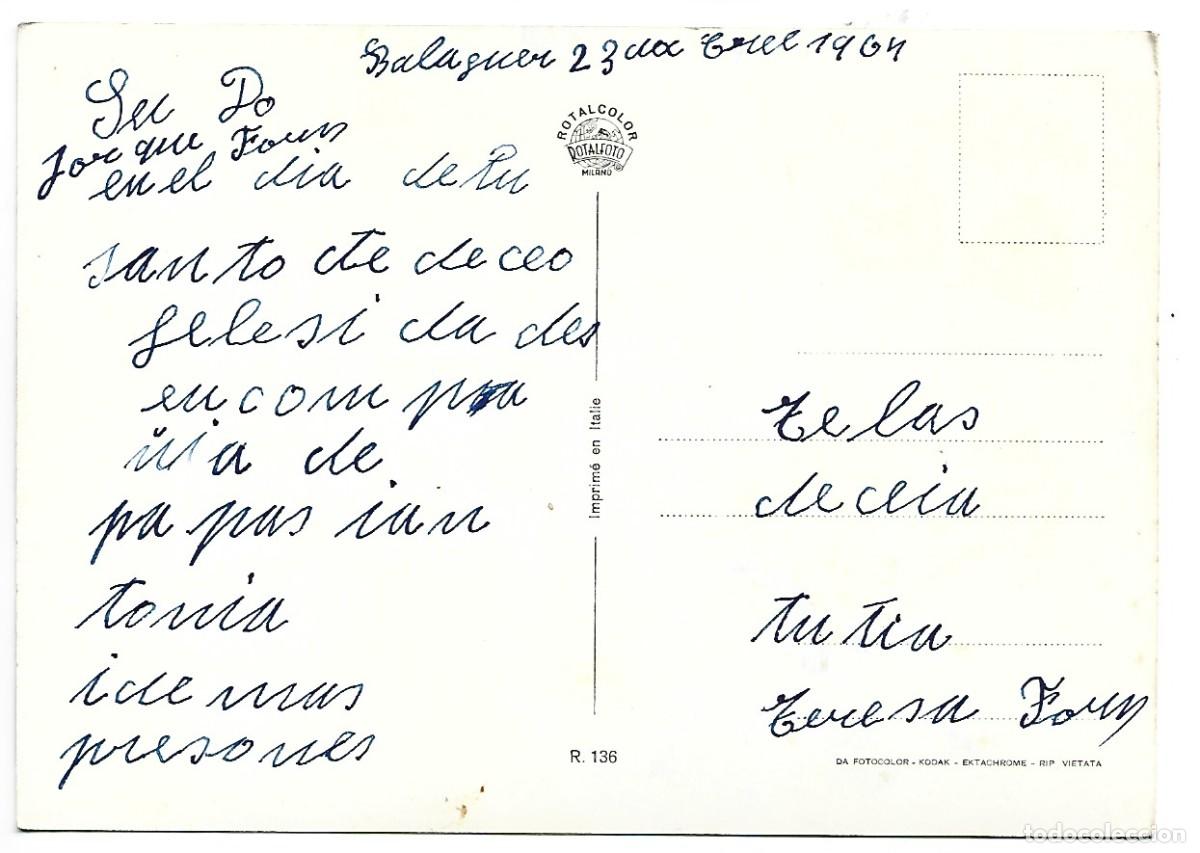 Balaguer 23 da Erel 1964
Seu Do
Jorque Forns
en el dia de tu
santo de deceo
felesi da des
en com pa
ñia de
pa pas ian
tonia
idemas
presones
ROTALCOLOR
ROTALFOTO
MILANO
Imprimé en Italie
R. 136
te las
deceia
tu tia
teresa Forns
DA FOTOCOLOR - KODAK - EKTACHROME - RIP VIETATA
todocoleccion